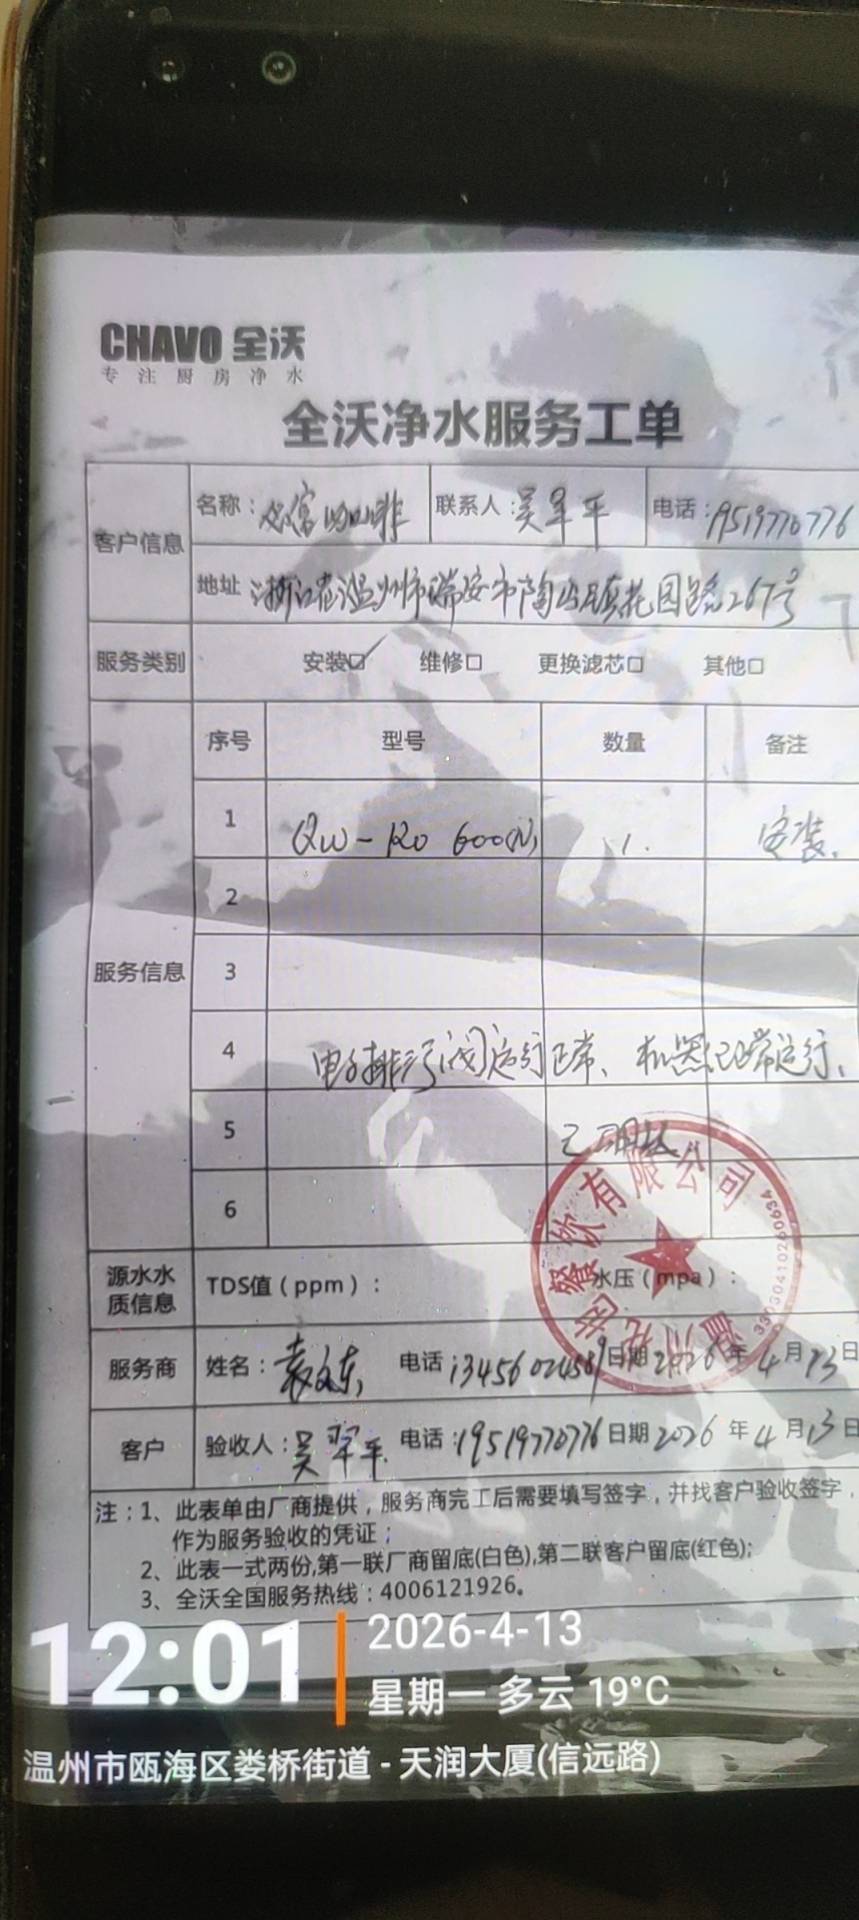 CHAVO 全沃
专注厨房净水
全沃净水服务工单
客户信息 名称： 咖啡 联系人：吴翠平 电话：19519770776
地址 浙江省温州市瑞安市陶山镇花园路267号
服务类别 安装☑ 维修□ 更换滤芯□ 其他□
服务信息 序号 型号 数量 备注
1 QW-RO 600(N) 1. 安装.
2
3
4 电子排污阀运行正常、机器已正常运行、
5 已
6
源水水质信息 TDS值（ppm）： 水压（mpa）：
餐饮有限公司
服务商 姓名：袁文东 电话 13456024589 日期 2026年4月13日
客户 验收人：吴翠平 电话：19519770776 日期 2026年4月13日
注：1、此表单由厂商提供，服务商完工后需要填写签字，并找客户验收签字，
作为服务验收的凭证；
2、此表一式两份,第一联厂商留底(白色),第二联客户留底(红色);
3、全沃全国服务热线：4006121926。
12:01 2026-4-13
星期一 多云 19°C
温州市瓯海区娄桥街道 - 天润大厦(信远路)